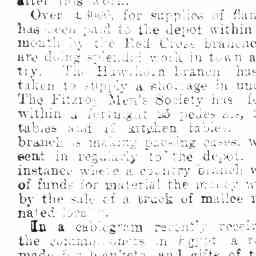 after this work.
Over £800, for supplies of flan
has been paid to the depot within
month by the Red Cross branche
are doing splendid work in town a
try. The Hawthorn branch has
taken to supply a shortage in un
The Fitzroy Men's Society has
within a fortnight 25 pedestals,
tables and 17 kitchen tables.
branch is making packing cases, w
sent in regularly to the depot.
instance where a country branch w
of funds for material the money w
by the sale of a truck of mallee r
nated locally.
In a cablegram recently receiv
the commissioners in Egypt a r
made for blankets and gifts of t